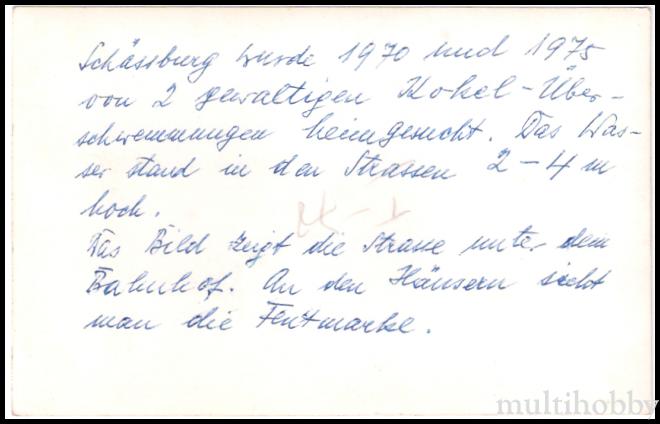 Schässburg wurde 1970 und 1975
von 2 gewaltigen Kokel-Über-
schwemmungen heimgesucht. Das Was-
ser stand in den Strassen 2-4 m
hoch.
Das Bild zeigt die Strasse unter dem
Bahnhof. An den Häusern sieht
man die Flutmarke.
multihobby